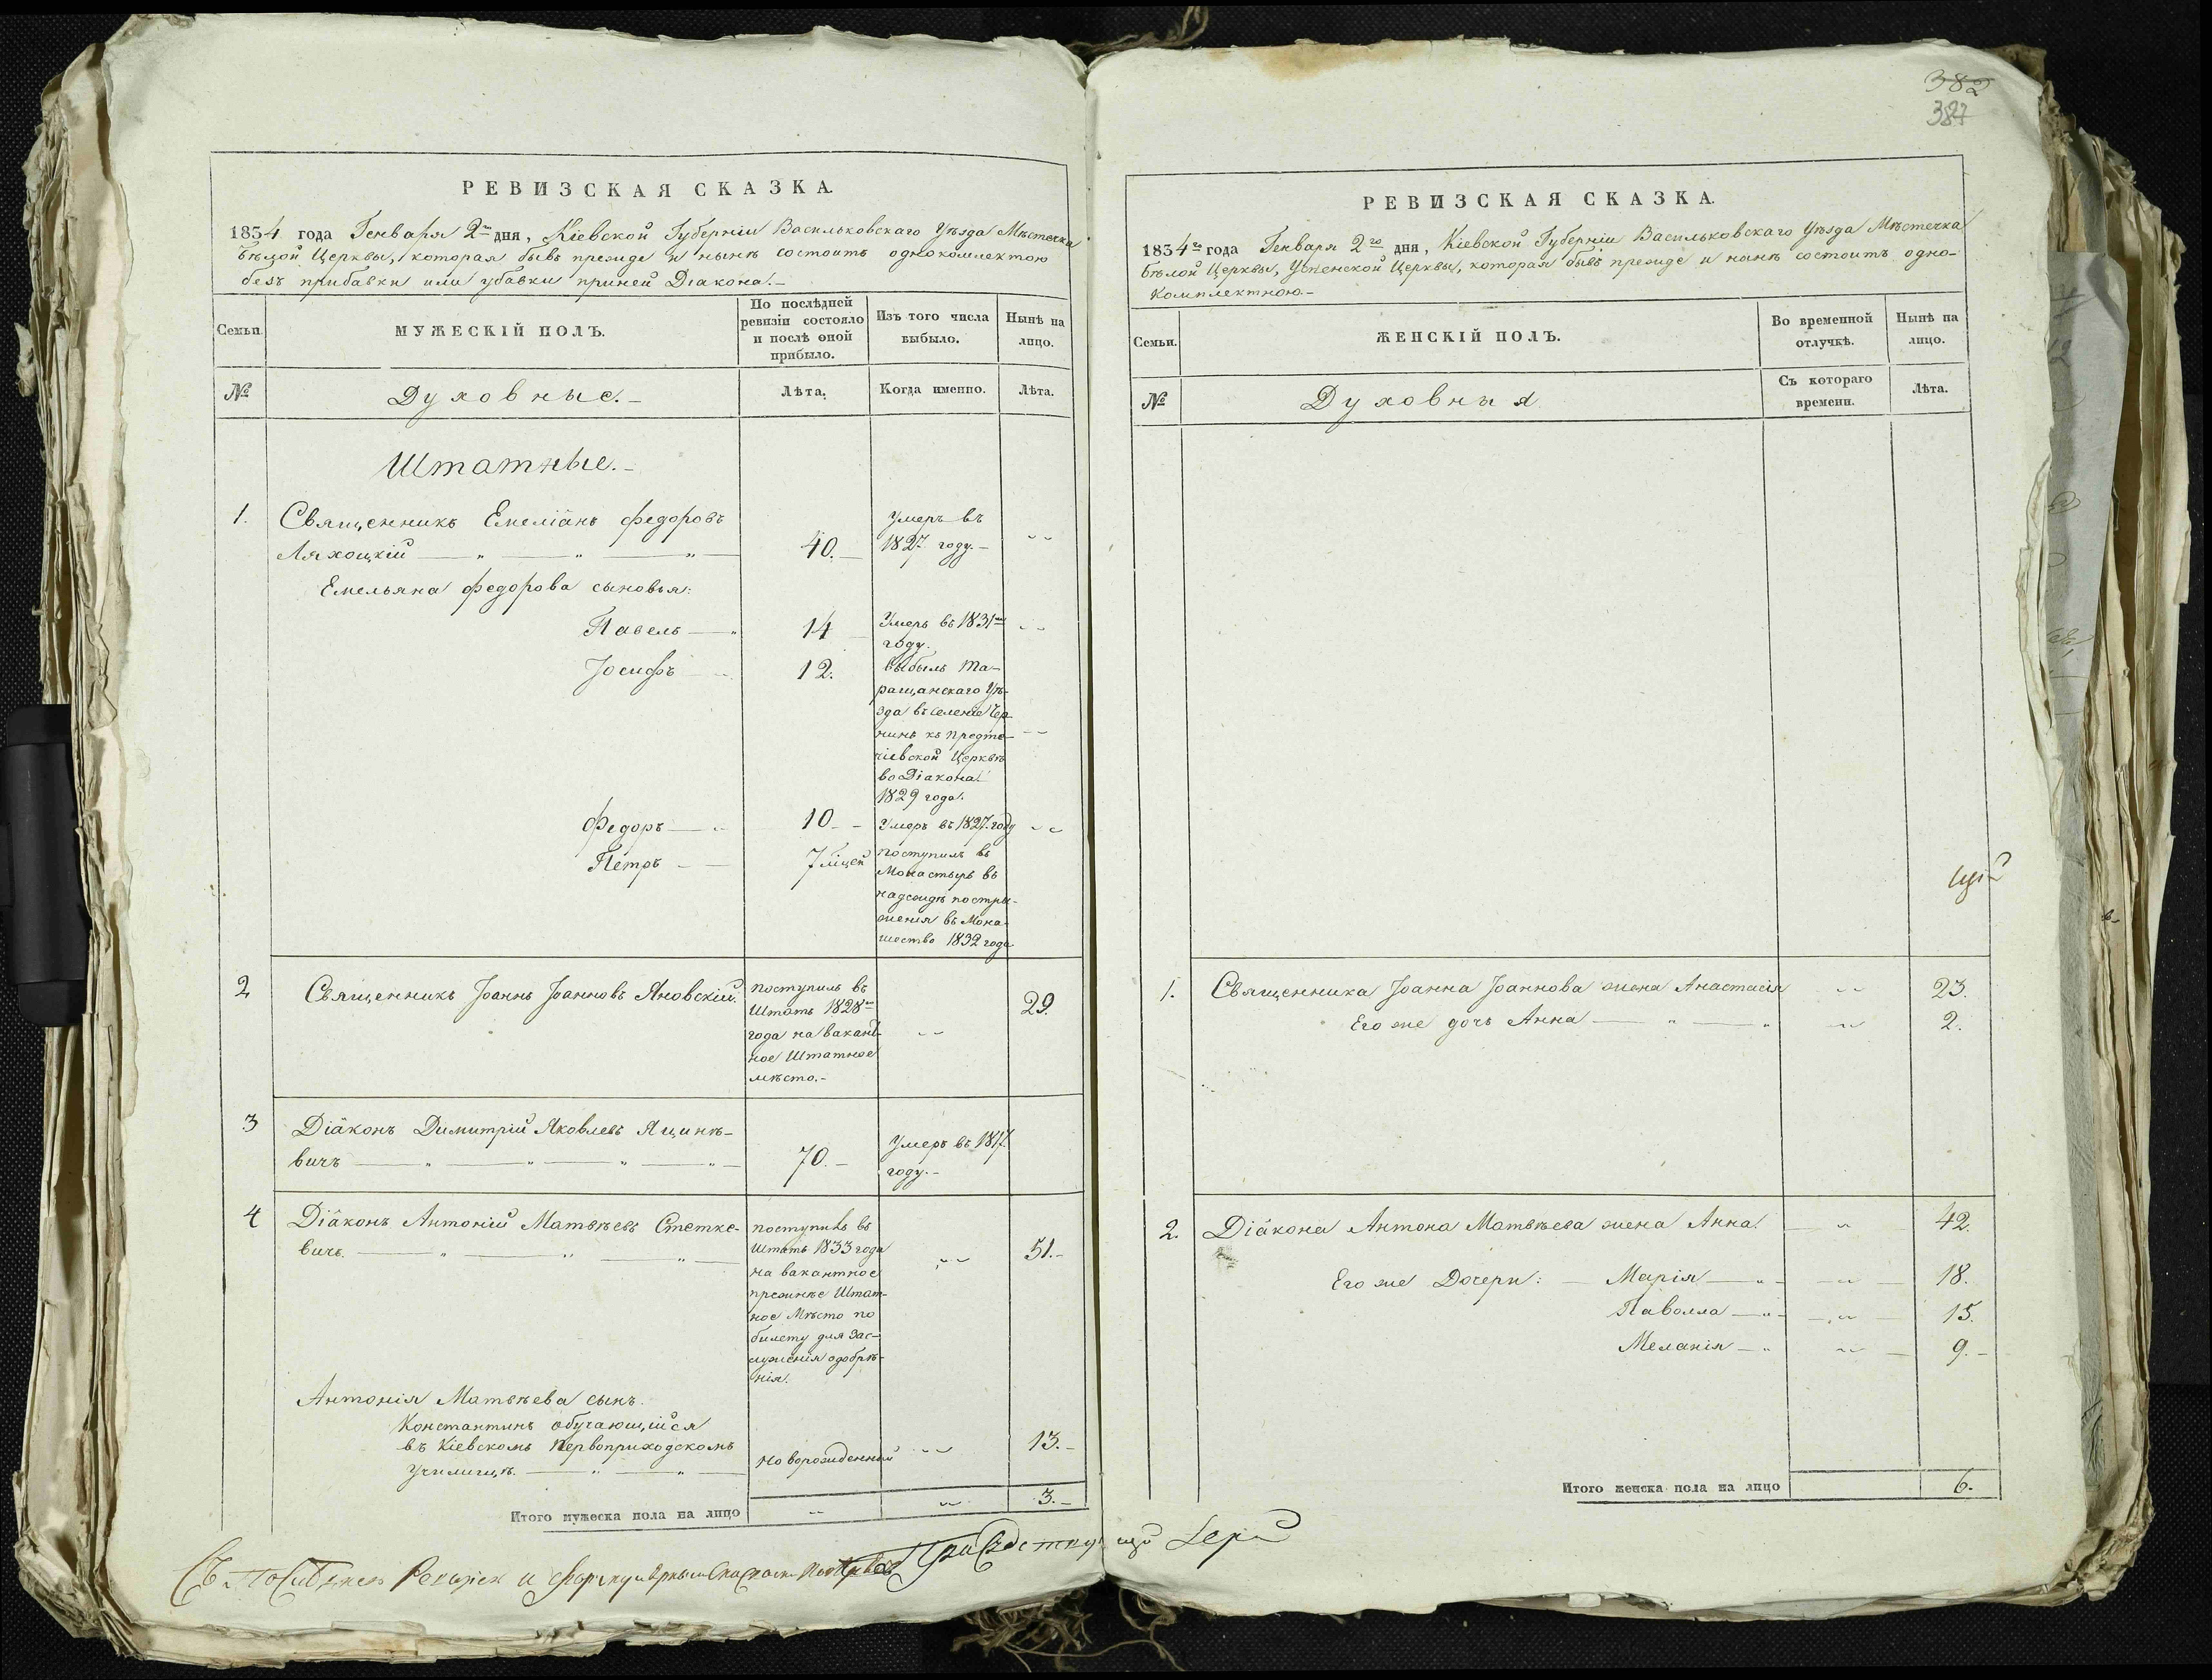 382
387
РЕВИЗСКАЯ СКАЗКА.
1834 года Генваря 2го дня, Кіевской Губерніи Васильковскаго Уѣзда Мѣстечка
Бѣлой Церквы, которая бывъ прежде и нынѣ состоитъ однокомплектою
безъ прибавки или убавки приней Діакона.-
Семьи.
МУЖЕСКІЙ ПОЛЪ.
По послѣдней
ревизіи состояло
и послѣ оной
прибыло.
Изъ того числа
выбыло.
Нынѣ на
лицо.
№
Духовные.-
Лѣта.
Когда именно.
Лѣта.
Штатные.-
1.
Священникъ Емеліанъ Федоровъ
Ляхоцкій
40.
Умеръ въ
1827 году.-
Емельяна Федорова сыновья:
Павелъ
14
Умеръ въ 1831мъ
году.
Іосифъ
12.
выбылъ Та-
ращанскаго Уѣ-
зда въ селеніе Чер
нинъ къ Предте-
чіевской Церквѣ
во Діакона
1829 года.
Федоръ
10
Умеръ въ 1827 году
Петръ
7
поступилъ въ
Монастырь въ
надеждѣ постри-
женія въ Мона-
шество 1832 года
2
Священникъ Іоаннъ Іоанновъ Яновскій.
поступилъ въ
Штатъ 1828го
года на вакант-
ное Штатное
мѣсто.-
29.
3
Діаконъ Димитрій Яковлевъ Яцинѣ-
вичъ
70.-
Умеръ въ 1817.
году.-
4
Діаконъ Антоній Матвѣевъ Стетке-
вичъ.
поступилъ въ
Штатъ 1833 года
на вакантное
прежнѣе Штат-
ное Мѣсто по
билету для зас-
луженія одобрѣ-
нія.
51.-
Антонія Матвѣева сынъ.
Константинъ обучающійся
въ Кіевскомъ первоприходскомъ
Училищѣ.
новорожденный
13.-
Итого мужеска пола на лицо
3.-
РЕВИЗСКАЯ СКАЗКА.
1834го года Генваря 2го дня, Кіевской Губерніи Васильковскаго Уѣзда Мѣстечка
Бѣлой Церквы, Успенской Церквы, которая бывъ прежде и нынѣ состоитъ одно-
комплектною.-
Семьи.
ЖЕНСКІЙ ПОЛЪ.
Во временной
отлучкѣ.
Нынѣ на
лицо.
№
Духовныя
Съ котораго
времени.
Лѣта.
1.
Священника Іоанна Іоаннова жена Анастасія
23.
Его же дочь Анна
2.
2.
Діакона Антона Матвѣева жена Анна.
42.
Его же Дочери: Марія
18.
Паволла
15.
Меланія
9.-
Итого женска пола на лицо
6.